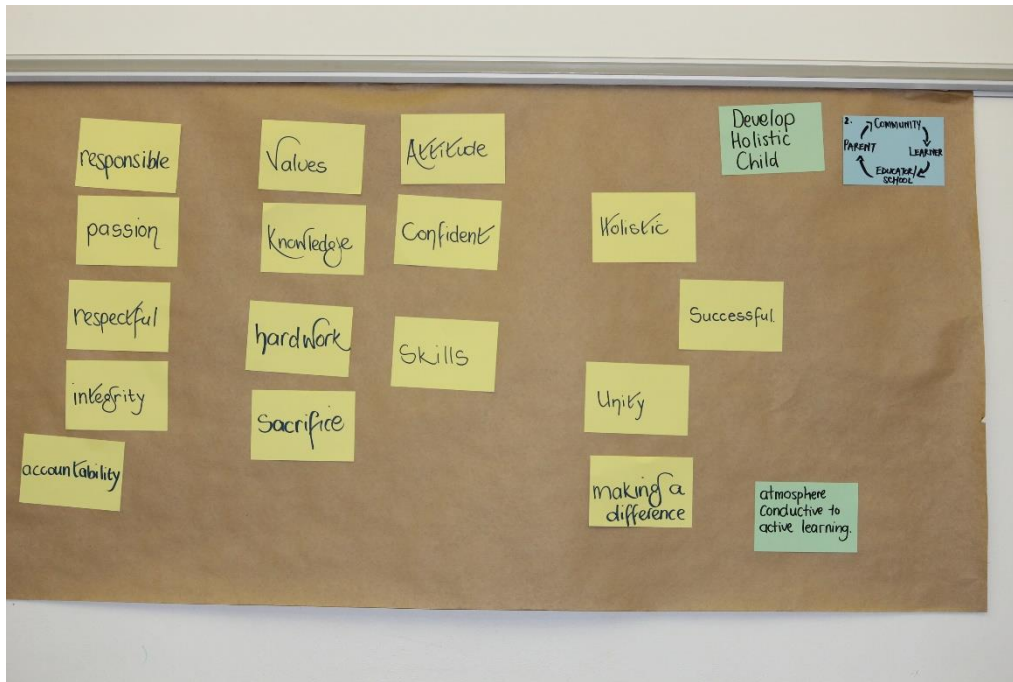 responsible
passion
respectful
integrity
accountability
Values
Knowledge
hardwork
Sacrifice
Attitude
Confident
Skills
Holistic
Successful.
Unity
making a
difference
Develop
Holistic
Child
2.
COMMUNITY
PARENT
LEARNER
EDUCATOR/
SCHOOL
atmosphere
conductive to
active learning.